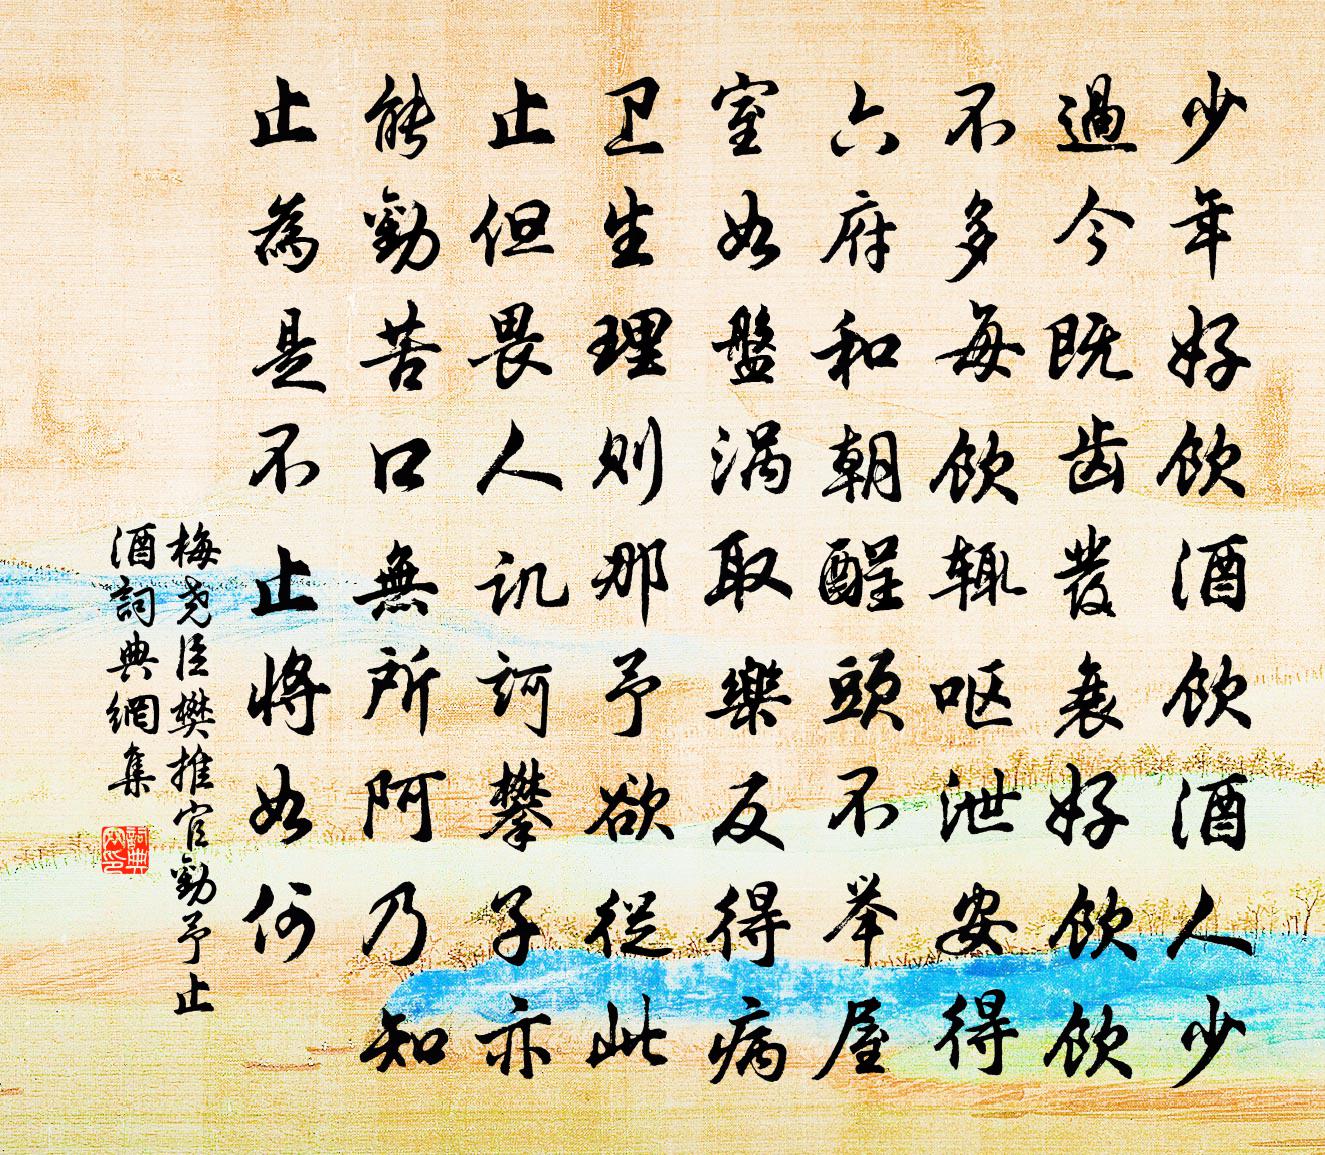 少年好飲酒飲酒人少
過今既齿發衰好飲飲
不多每飲輒呕泄安得
六府和朝醒頭不举屋
室如盤涡取樂反得病
卫生理则那予欲從此
止但畏人讥訶攀子亦
能勸苦口無所阿乃知
止為是不止將如何
梅尧臣樊推官勸予止
酒詞典網集
詞典